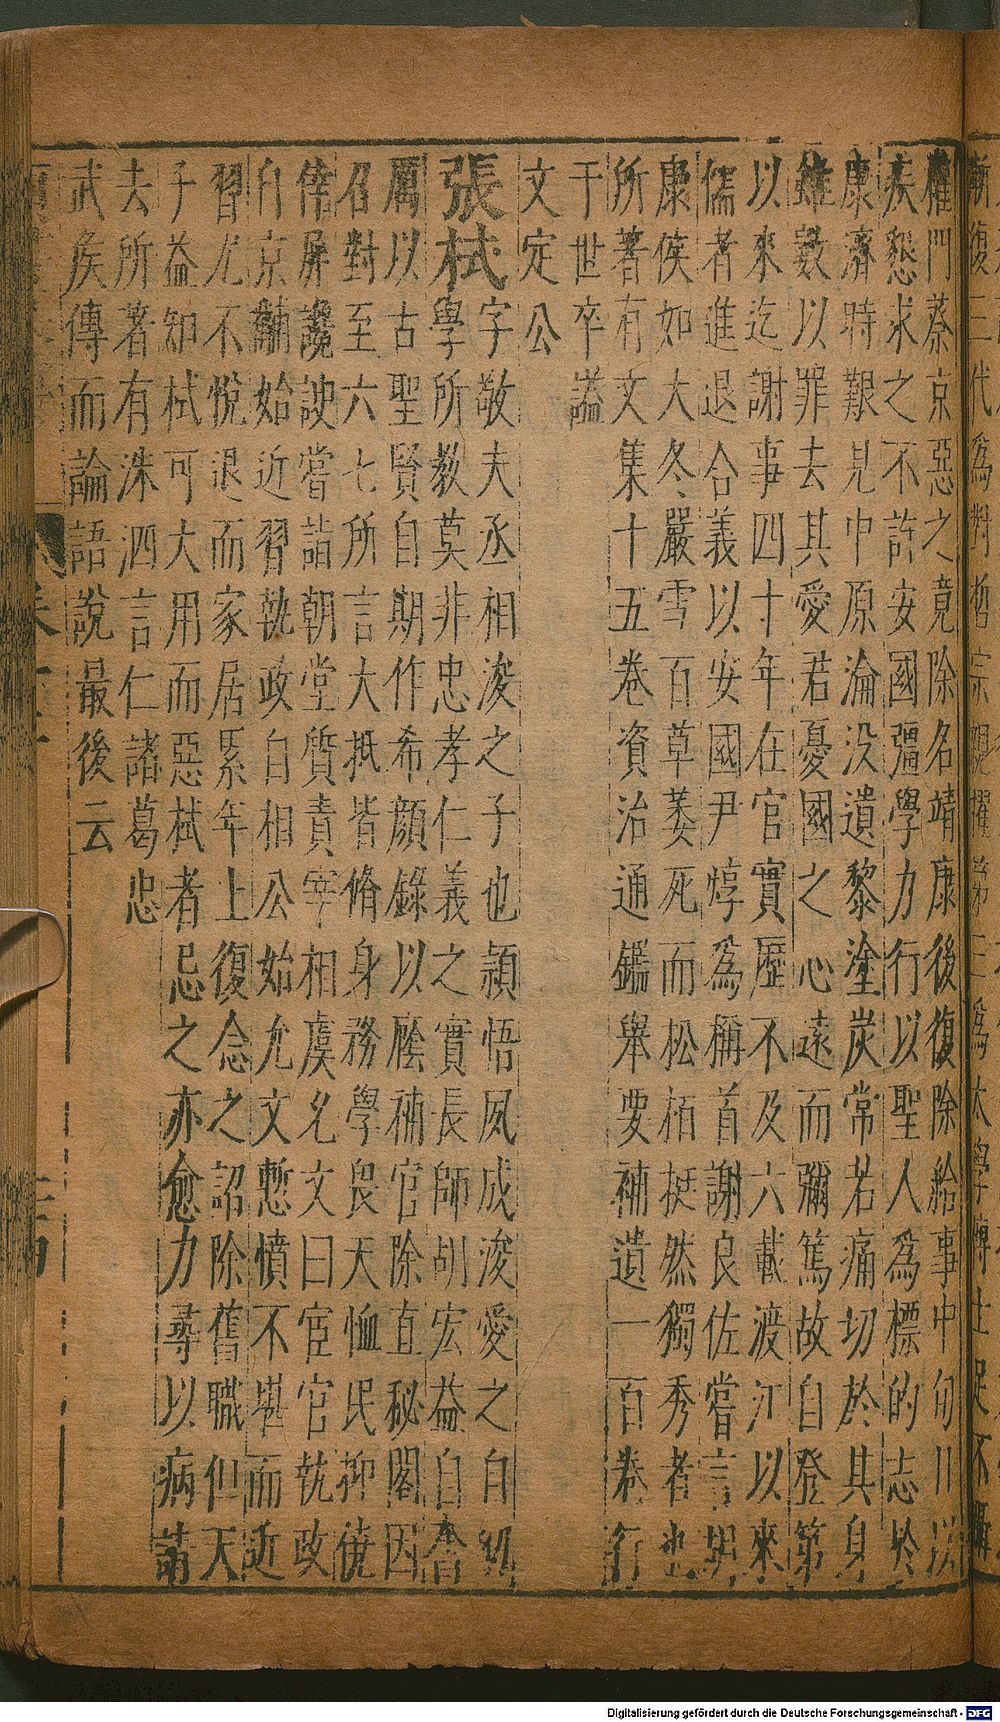 權門蔡京惡之竟除名靖康後復除給事中旬日以
疾懇求之不許安國彊學力行以聖人為標的志於
康濟時艱見中原淪没遺黎塗炭常若痛切於其身
雖數以罪去其愛君憂國之心遠而彌篤故自登第
以來迄謝事四十年在官實歷不及六載渡江以來
儒者進退合義以安國尹焞為稱首謝良佐嘗言胡
康侯如大冬嚴雪百草萎死而松栢挺然獨秀者也
所著有文集十五卷資治通鑑舉要補遺一百卷行
于世卒謚
文定公
張栻字敬夫丞相浚之子也頴悟夙成浚愛之自幼
學所教莫非忠孝仁義之實長師胡宏益自奮
厲以古聖賢自期作希顔錄以廕補官除直秘閣因
召對至六七所言大抵皆脩身務學畏天恤民抑僥
倖屏讒諛嘗詣朝堂質責宰相虞允文曰宦官執政
自京黼始近習執政自相公始允文慙憤不堪而近
習尤不悅退而家居累年上復念之詔除舊職但天
子益知栻可大用而惡栻者忌之亦愈力尋以病請
去所著有洙泗言仁諸葛忠
武矦傳而論語說最後云
Digitalisierung gefördert durch die Deutsche Forschungsgemeinschaft - DFG